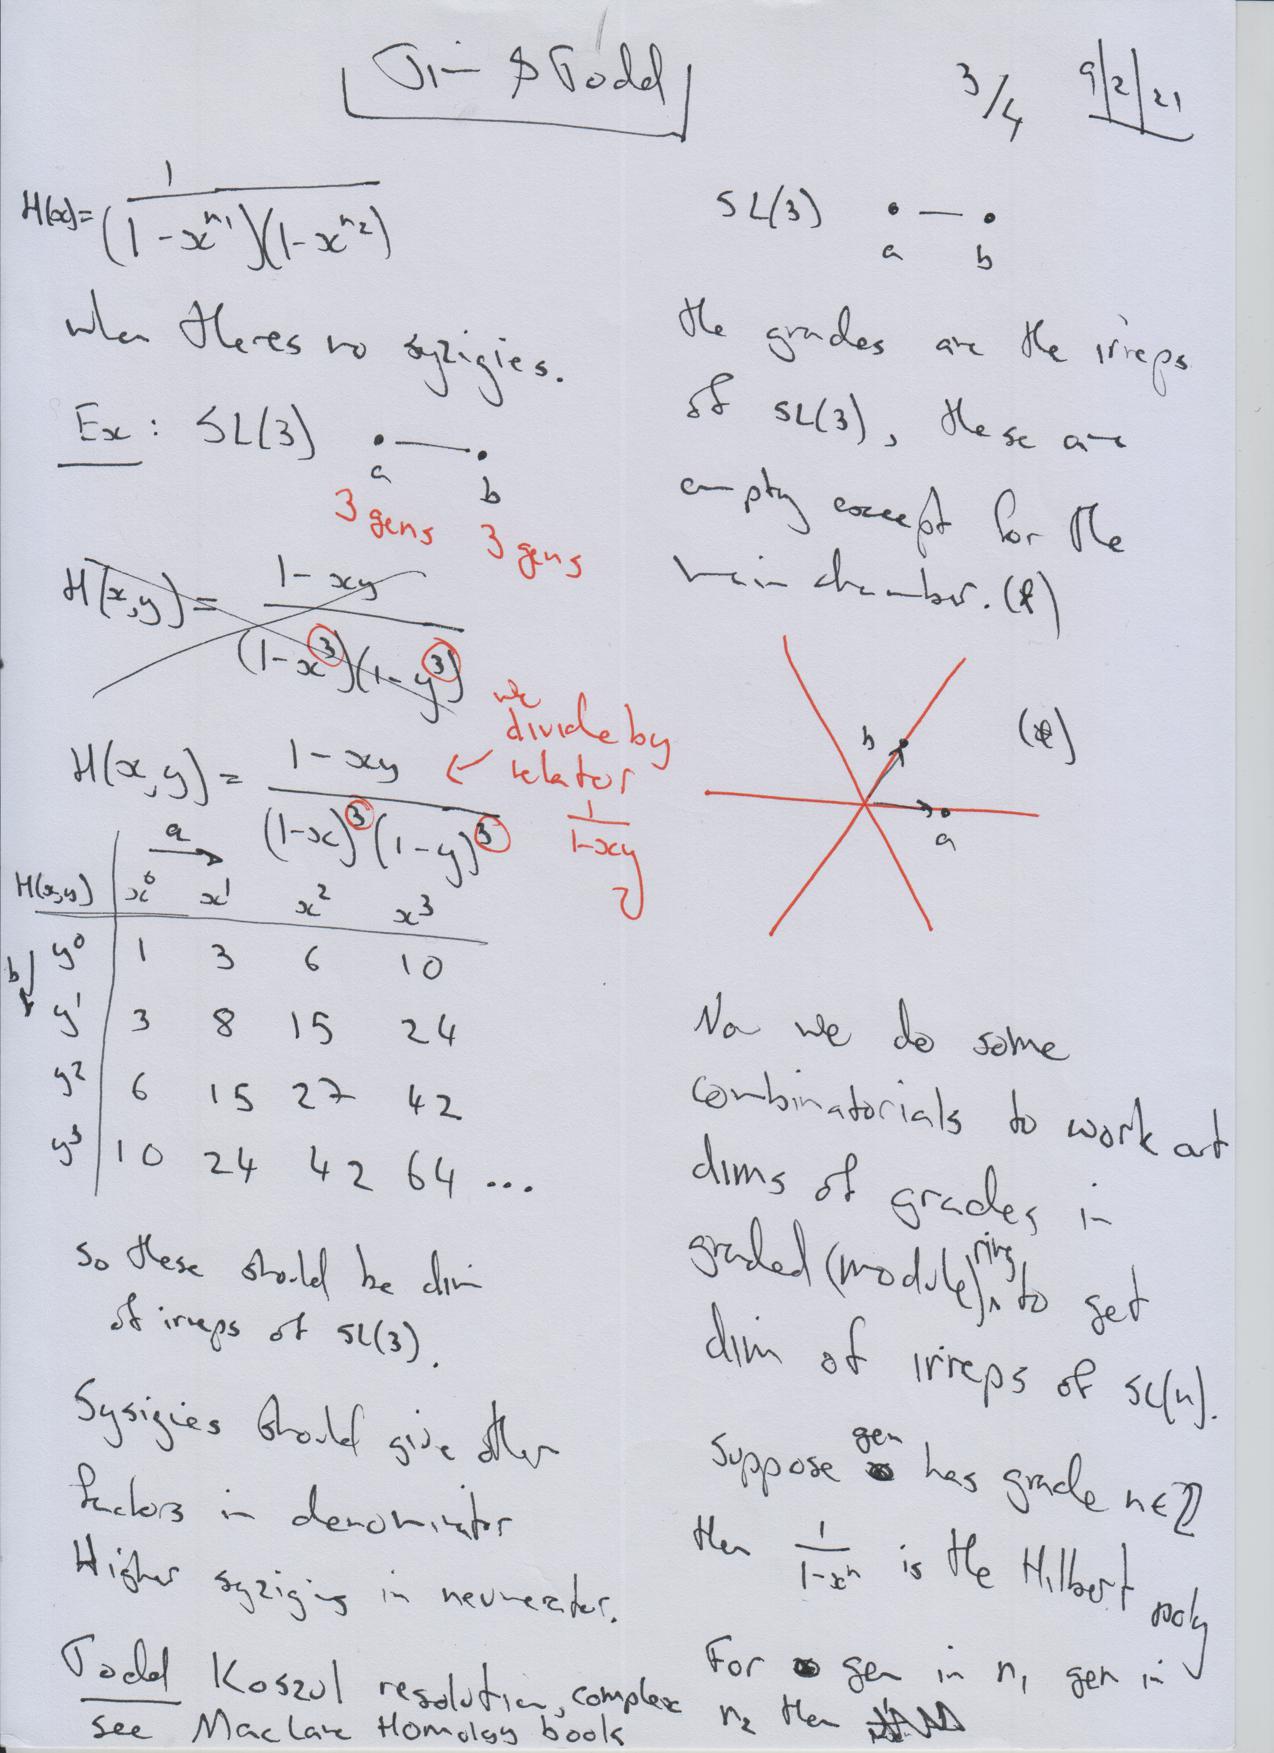 Jim & Todd
3/4 9/2/21
H(x) = 1 / (1-x^{n_1})(1-x^{n_2})
when theres no syzigies.
Ex: SL(3)
a b
3 gens 3 gens
H(x,y) = 1-xy / (1-x^3)(1-y^3)
H(x,y) = 1-xy / (1-x)^3 (1-y)^3
we
divide by
relator
1/1-xy
a
H(x,y) x^0 x^1 x^2 x^3
b
y^0 1 3 6 10
y^1 3 8 15 24
y^2 6 15 27 42
y^3 10 24 42 64 ...
so these should be dim
of irreps of SL(3).
Sysigies should give other
factors in denominator
Higher syzigies in neumerator.
Todd Koszul resolution, complex
see MacLane Homology book
SL(3)
a b
the grades are the irreps
of SL(3), these are
empty except for the
main chamber. (*)
b (*)
a
Now we do some
combinatorials to work out
dims of grades in
graded (module) ring to get
dim of irreps of SL(n).
Suppose gen has grade n∈ℤ
then 1/1-x^n is the Hilbert poly
For gen in n_1 gen in
n_2 then